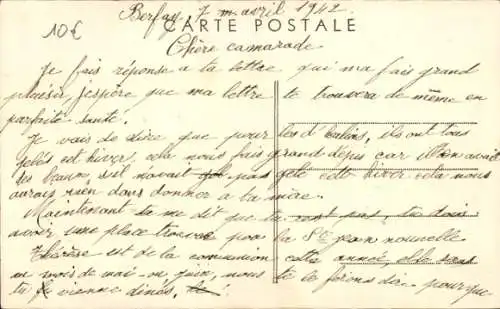 10€
Berfay, 7 avril 1942
CARTE POSTALE
Chère camarade
Je fais réponse a ta lettre qui ma fais grand
plaisir, jespère que ma lettre te trouvera de même en
parfaite santé.
Je vais te dire que pour les d'halins, ils ont tous
gelés cet hiver, cela nous fais grand dépis car il en avait
des beaux, sil navait pas gelé cette hiver cela nous
aurais rien dans donner a ta mère.
Maintenant tu me dit que tu vont pas, tu dois
avoir une place trouver pour la St jean nouvelle
Thérèse est de la communion cette année, elle sans
au mois de mai ou juin, nous te le ferons dire pour que
tu vienne dinés.